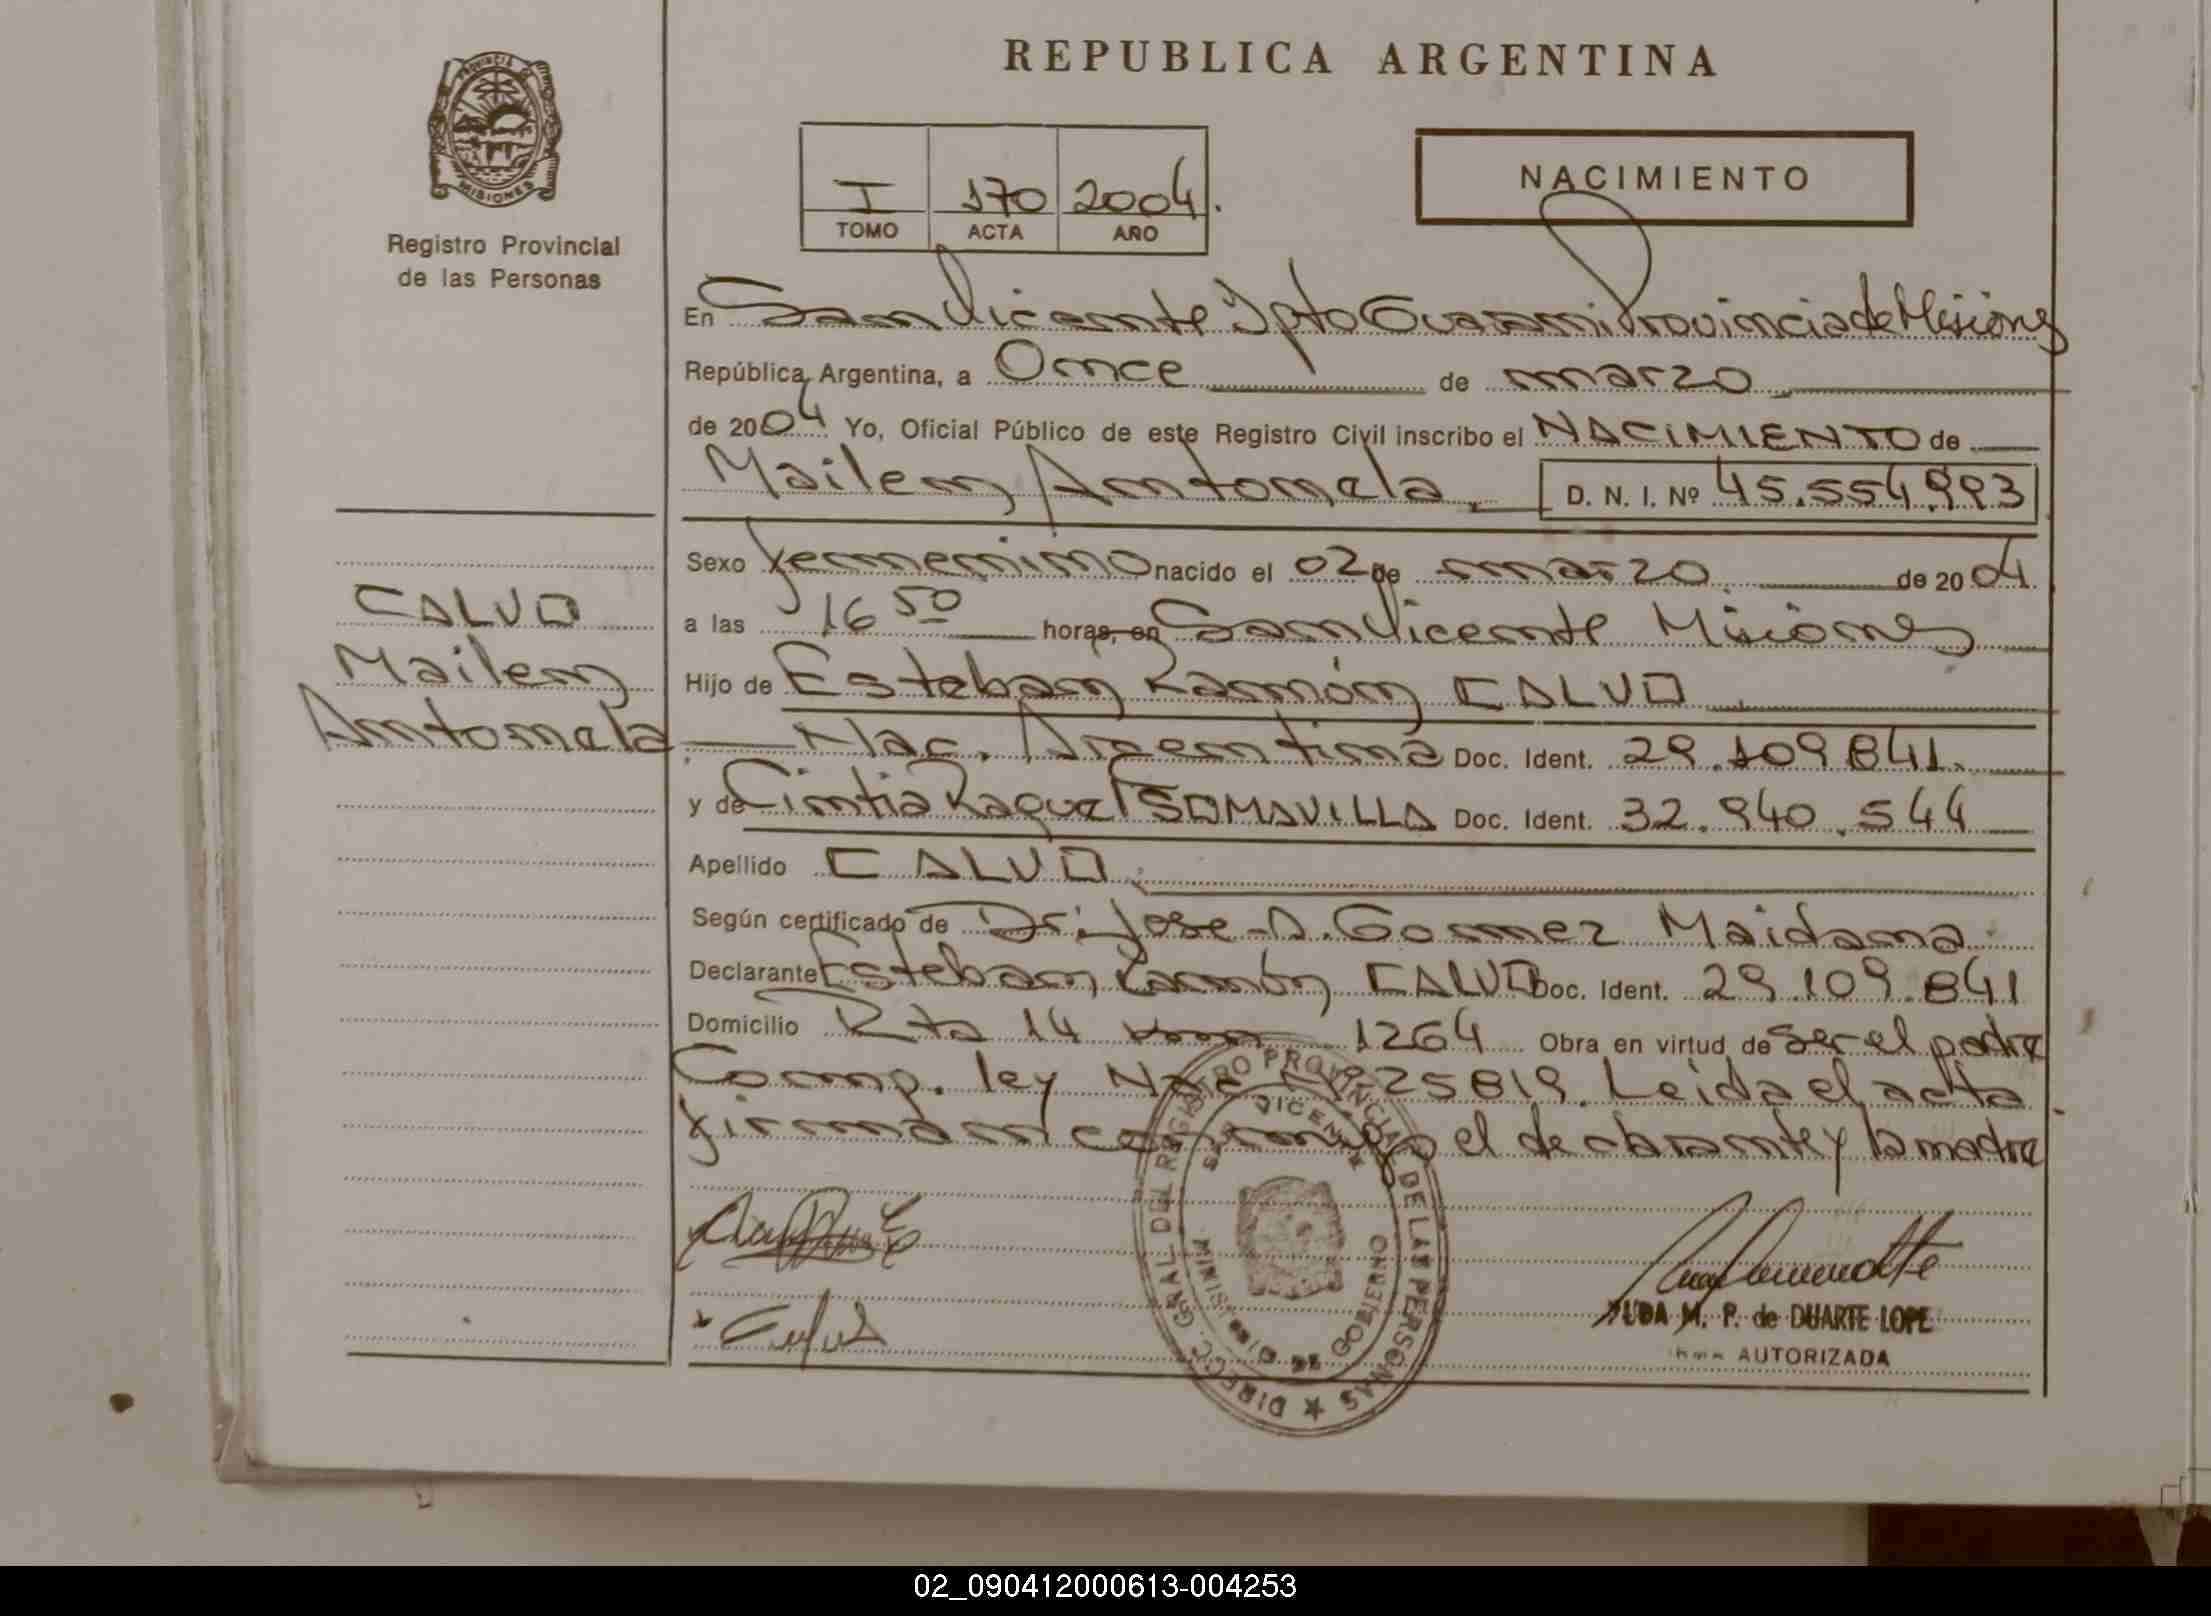 REPUBLICA ARGENTINA
PROVINCIA DE MISIONES
Registro Provincial
de las Personas
I 170 2004.
TOMO ACTA AÑO
NACIMIENTO
En San Vicente Dpto Guarani Provincia de Misiones
República Argentina, a Once de marzo
de 2004 Yo, Oficial Público de este Registro Civil inscribo el NACIMIENTO de
Mailen Antonela D. N. I. Nº 45.554.993
Sexo femenino nacido el 02 de marzo de 2004
a las 16 50 horas, en San Vicente Misiones
Hijo de Esteban Ramón CALVO
Nac. Argentina Doc. Ident. 29.109.841.
y de Cintia Raquel SOMAVILLA Doc. Ident. 32.940.544
Apellido CALVO
Según certificado de Dr. Jose A. Gomez Maidana
Declarante Esteban Ramón CALVO Doc. Ident. 29.109.841
Domicilio Rta 14 km 1264 Obra en virtud de ser el padre
Comp. ley Nac Nº 25819. Leida el acta
firman conmigo el declarante y la madre
CALVO
Mailen
Antonela
DIRECC. GRAL. DEL REGISTRO PROVINCIAL DE LAS PERSONAS
SAN VICENTE
MINISTERIO DE GOBIERNO
M. P. de DUARTE LOPE
AUTORIZADA
02_090412000613-004253